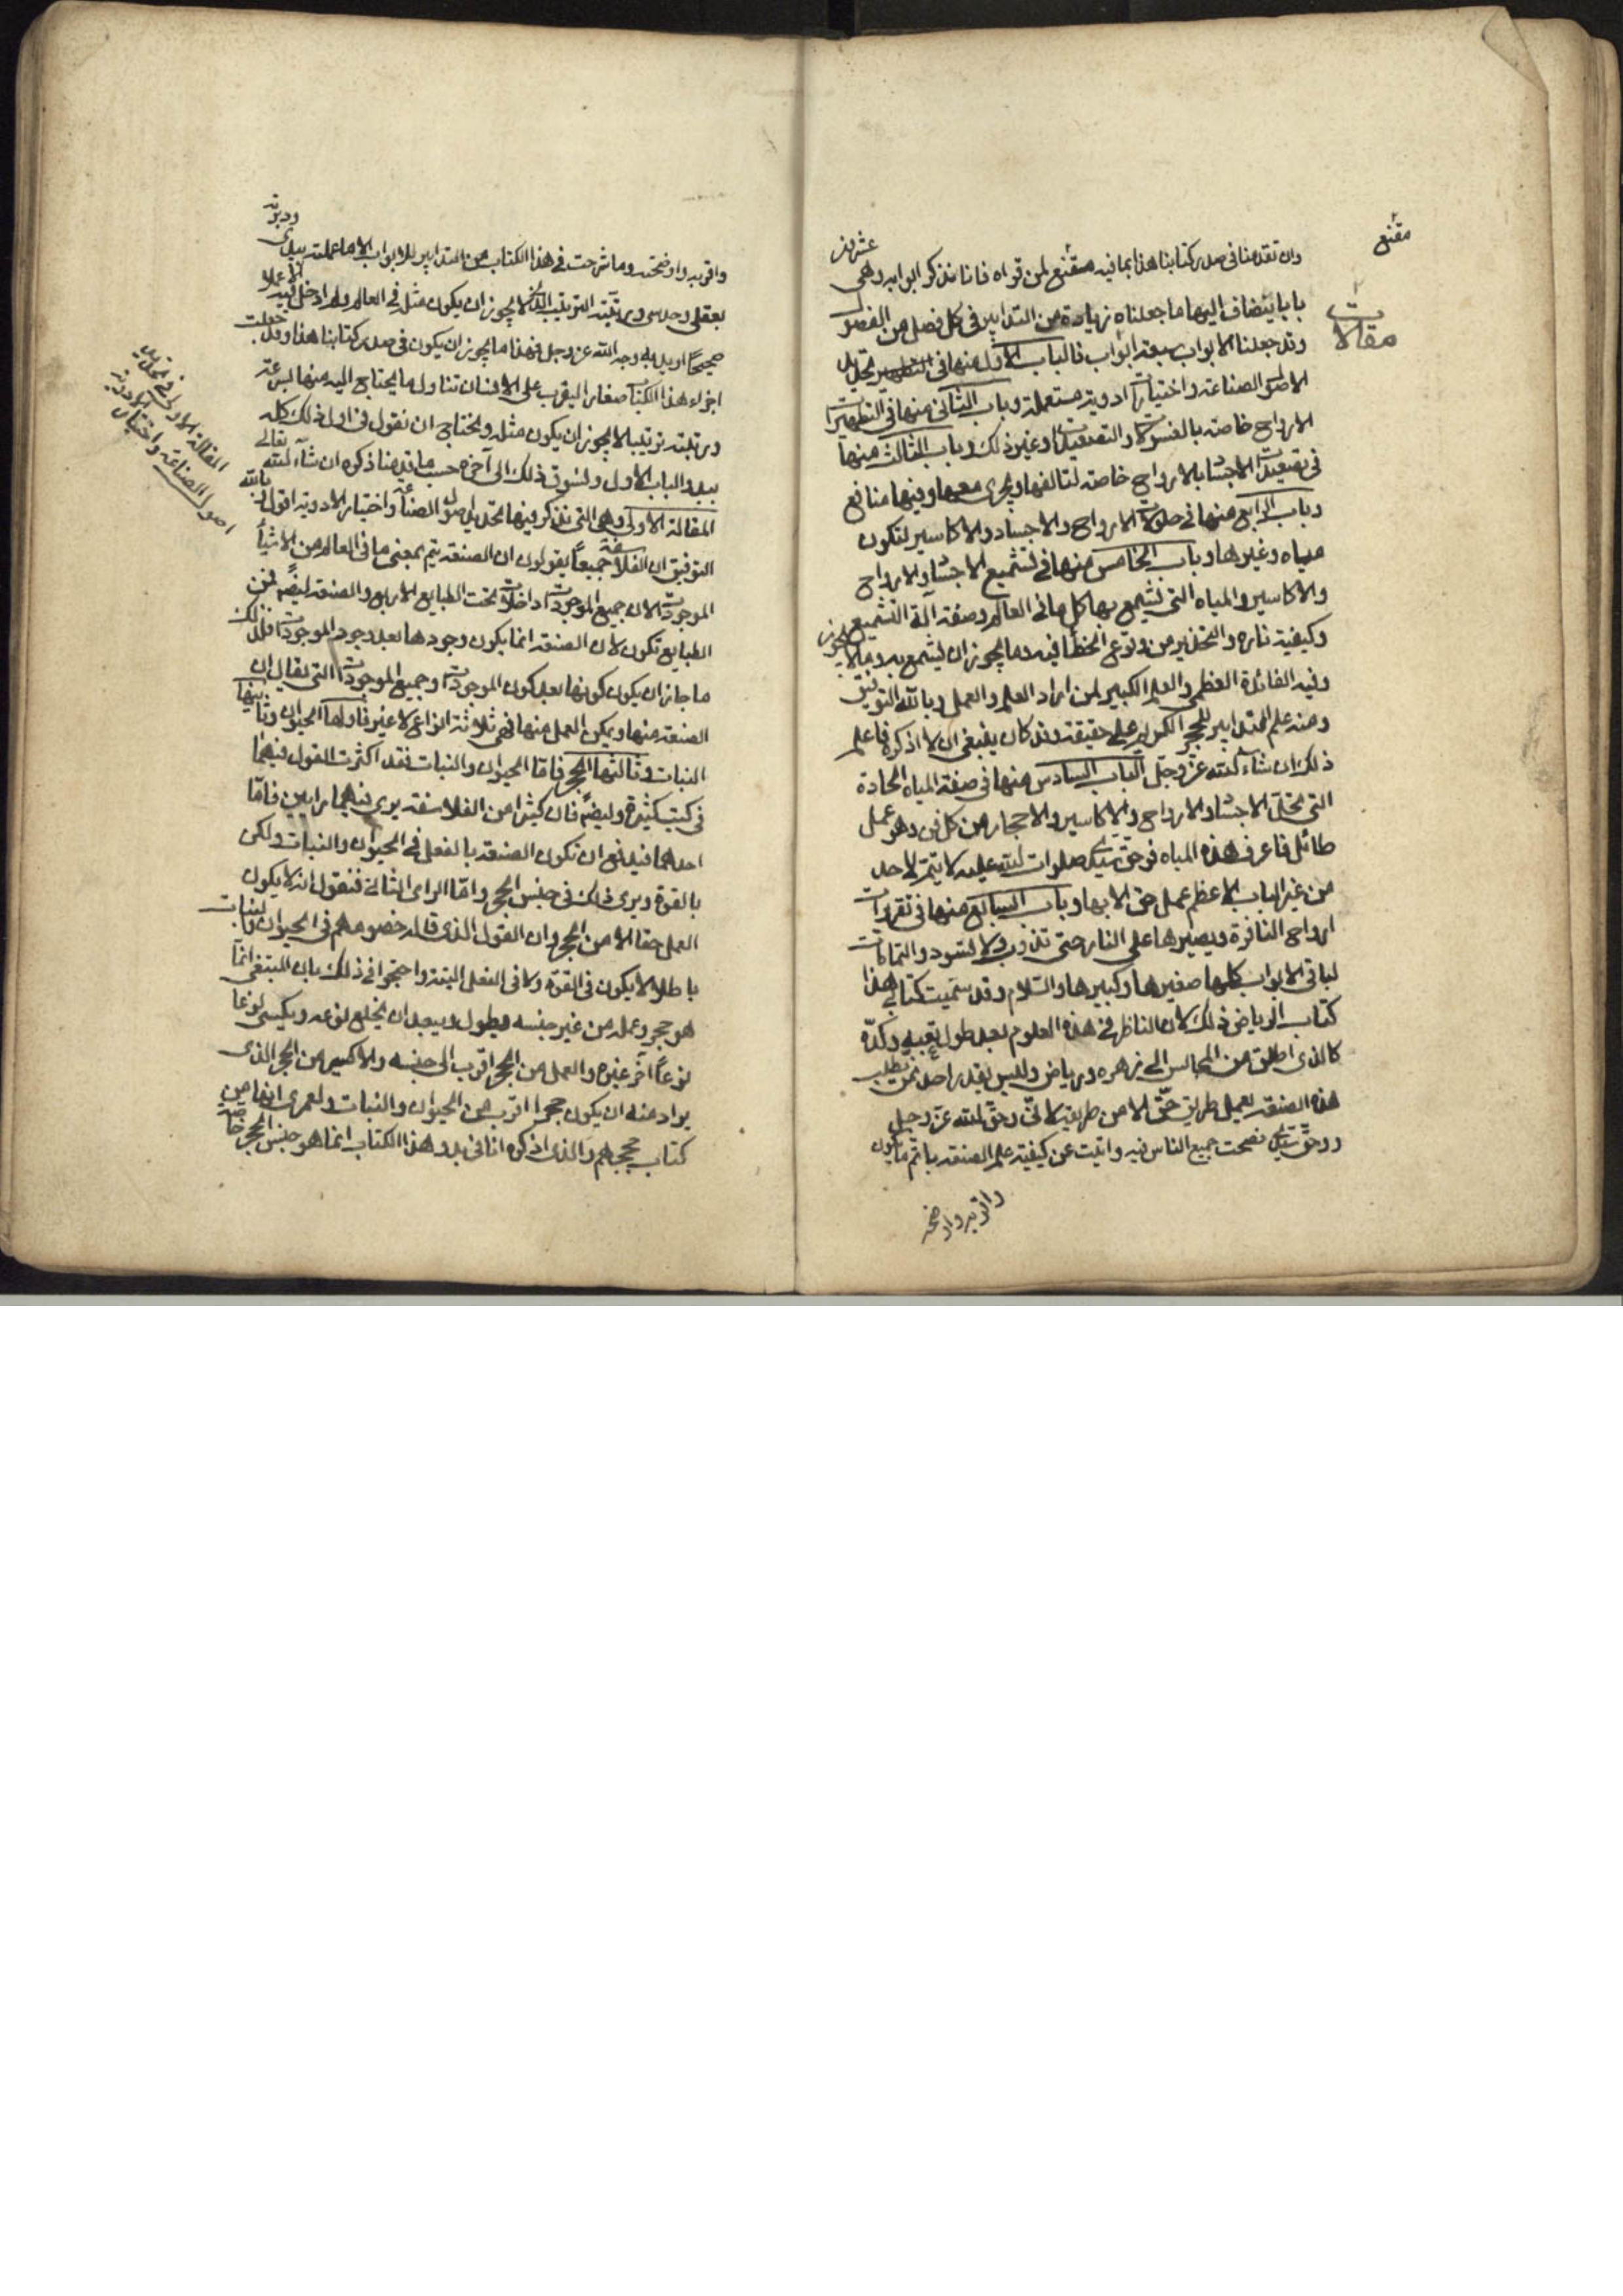 مقنع
مقالات
وان تقدمنا في صدر كتابنا هذا بما فيه مقنع لمن قراه فانا نذكر ابوابه وهي عشرين
بابا يتضاف اليها ما جعلناه زيادة من التدابير في كل فصل من الفصول
وقد جعلنا الابواب سبعة ابواب فالباب الاول منها في تحليل
الاصول الصناعة واختيارات ادوية مستعملة وباب الثاني منها في التطهيرات
الارواح خاصة بالغسولات والتصعيدات وغير ذلك وباب الثالث منها
في تصعيدات الاجساد بالارواح خاصة لتالفها ويجرى معها وفيها منافع
وباب الرابع منها في حلولات الارواح والاجساد والاكاسير لتكون
مياه وغيرها وباب الخامس منها في تشميع الاجساد والارواح
والاكاسير والمياه التي تشمع بها كل ما في العالم وصفة آلة التشميع
وكيفية ناره والتحذير من وقوع الخطأ فيه وما يجوز ان يشمع به وما لا يجوز
وفيه الفائدة العظمى والعلم الكبير لمن اراد العلم والعمل وبالله التوفيق
ومنه علم التدابير للحجر المكرم على حقيقة وقد كان ينبغي ان لا اذكره فاعلم
ذلك ان شاء الله عز وجل الباب السادس منها في صفة المياه الحادة
التي تحل الاجساد والارواح والاكاسير والاحجار من كل فن وهو عمل
طائل فاعرف هذه المياه فوحق سيدي صلوات الله عليه لا يتم لاحد
من غير الباب الاعظم عمل حق الا بها وباب السابع منها في تقريرات
ارواح النافرة ويصيرها على النار حتى تذوب ولا تسود والتماكات
لباقي الابواب كلها صغيرها وكبيرها والسلام وقد سميت كتابي هذا
كتاب الرياض ذلك لان الناظر في هذه العلوم بعد طول تعبه وكده
كالذى اطلق من المجالس الى زهره ورياض وليس يقدر احد ممن يطلب
هذه الصنعة لعمل طريق حق الا من طريق لاني وحق الله عز وجل
وحق سيدي نصحت جميع الناس فيه وابنت عن كيفية علم الصنعة باتم ما يكون
واقربه واوضحه
واقربه واوضحته وما شرحت في هذا الكتاب من التدابير للابواب الا ما عملته بيدى ودبرته
بعقلى وحدسى ورتبته الترتيب الذى لا يجوز ان يكون مثله في العالم ولم ادخل فيه الا عملا
صحيحا اريد به وجه الله عز وجل فهذا ما يجوز ان يكون في صدر كتابنا هذا وقد جعلت
اجزاء هذا الكتاب صغار اليقرب على الانسان تناول ما يحتاج اليه منها بسرعة
ورتبته ترتيبا لا يجوز ان يكون مثله ونحتاج ان نقول في اول ذلك كله
ببدو الباب الاول ولنسوق ذلك الى آخره حسب ما قدمنا ذكره ان شاء الله تعالى
المقالة الاولى وهي التي نذكر فيها تحليل اصول الصناعة واختيار الادوية اقول وبالله
التوفيق ان الفلاسفة جميعاً يقولون ان الصنعة يتم بمعنى ما في العالم من الاشياء
الموجودات لان جميع الموجودات داخلات تحت الطبايع الاربع والصنعة ايضاً من
الطبايع تكون لان الصنعة انما يكون وجودها بعد وجود الموجودات فلذلك
ما جاز ان يكون كونها بعد كون الموجودات وجميع الموجودات التي يقال ان
الصنعة منها ويمكن العمل منها فهي ثلاثة انواع لا غير فاولها الحيوان وثانيها
النبات وثالثها الحجر فاما الحيوان والنبات فقد اكثرت القول فيهما
في كتب كثيرة وايضاً فان كثيرا من الفلاسفة يرى فيهما رايين فاما
احدهما فيدفع ان تكون الصنعة بالفعل في الحيوان والنبات ولكن
بالقوة ويرى ذلك في جنس الحجر واما الراى الثاني فنقول انه لا يكون
العمل حقا الا من الحجر وان القول الذى قاله خصومهم في الحيوان والنبات
باطلا لا يكون في القوة ولا في الفعل البتة واحتجوا في ذلك بان المبتغى انما
هو حجر وعمله من غير جنسه يطول ويبعد ان يخلع نوعه ويكتسى نوعا
نوعاً آخر غيره والعمل من الحجر اقرب الى جنسه والاكسير من الحجر الذى
يراد منه ان يكون حجرا اقرب من الحيوان والنبات ولعمرى انها من
كتاب حججهم والذى اذكره انا في بدو هذا الكتاب انما هو جنس الحجر خاصة
المقالة الاولى في تحليل
اصول الصناعة واختيار الادوية